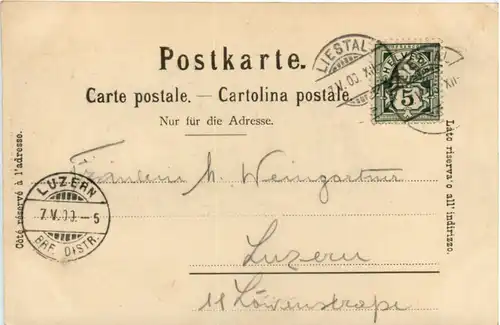 Postkarte.
Carte postale. — Cartolina postale.
Nur für die Adresse.
LIESTAL
7.V.00.XII
HELVETIA
5
Côté réservé à l'adresse.
Lato riservato all'indirizzo.
LUZERN
7.V.00.–5
BRF. DISTR.
Fräulein M. Weingartner
Luzern
11 Löwenstraße